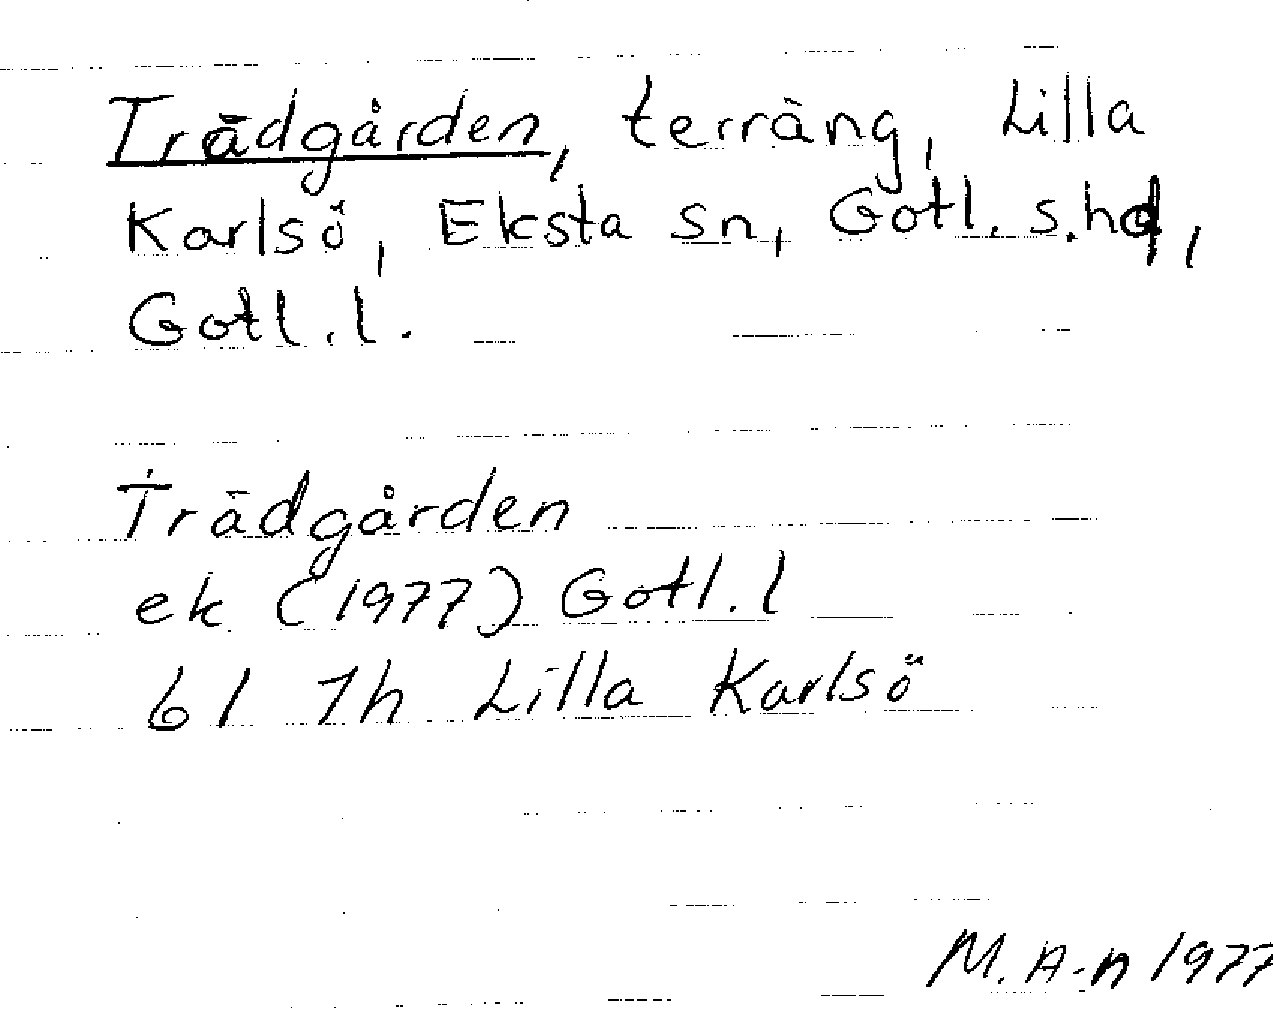 Trädgården, terräng, Lilla
Karlsö, Eksta sn, Gotl. s. hd,
Gotl. l.
Trädgården
ek (1977) Gotl. l
6 I 7h Lilla Karlsö
M. A-n 1977